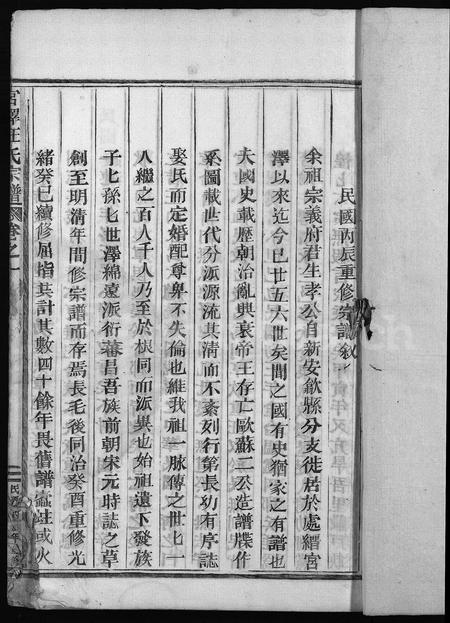 民國丙辰重修宗譜敘
余祖宗義府君生孝公自新安歙縣分支徙居於處縉宮
澤以來迄今已廿五六世矣聞之國有史猶家之有譜也
夫國史載歷朝治亂與衰帝王存亡歐蘇二公造譜牒作
系圖載世代分派源流其清而不紊列行第長幼有序誌
娶氏而定婚配尊卑不失倫也維我祖一脈傳之世七一
人繼之百人千人乃至於根同而派異也始祖遺下發族
子七孫七世澤綿遠派衍蕃昌吾族前朝宋元時誌之草
創至明清年間修宗譜而存焉長毛後同治癸酉重修光
緒癸巳續修屈指共計其數四十餘年畏舊譜蠹蛀或火
宮澤汪氏宗譜 卷之一
民 年